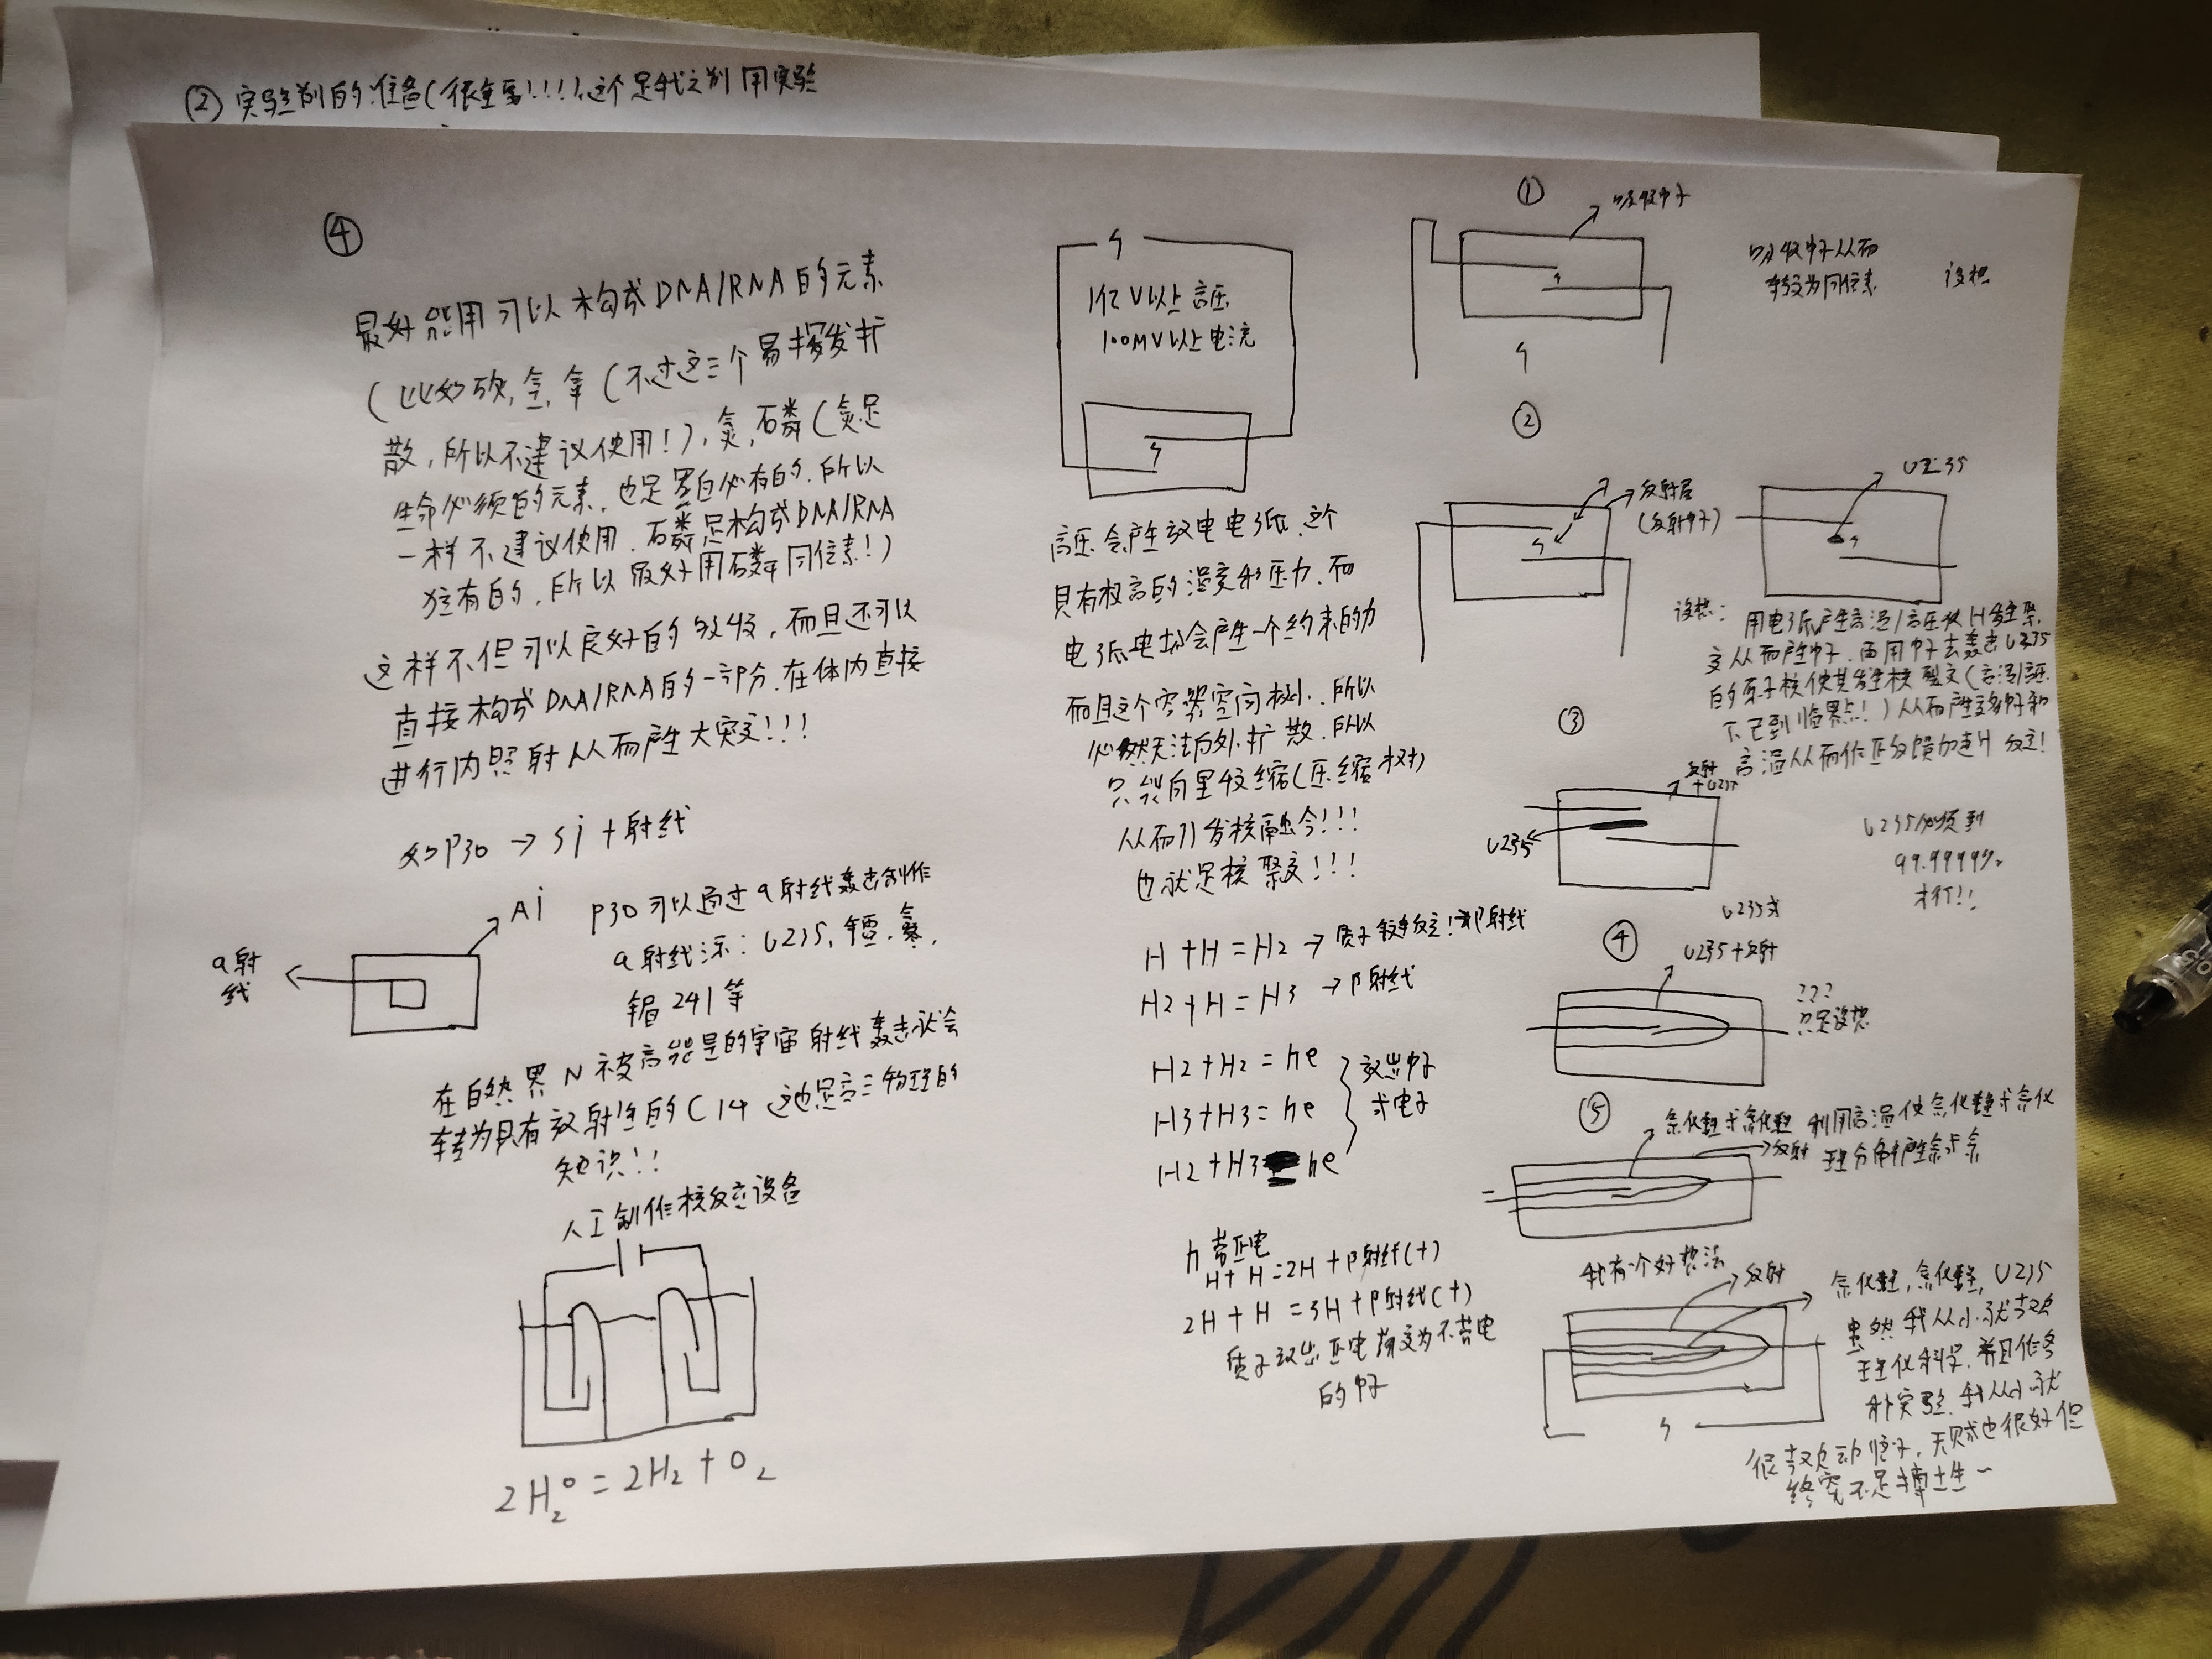 ② 实验前的准备(很重要!!!),这个是我之前用实验
④
最好能用可以构成DNA/RNA的元素
(比如碳,氢,氧(不过这三个易挥发扩
散,所以不建议使用!),氮,磷(氮是
生命必须的元素,也是蛋白必有的,所以
一样不建议使用,磷是构成DNA/RNA
独有的,所以最好用磷同位素!)
这样不但可以良好的吸收,而且还可以
直接构成DNA/RNA的一部分,在体内直接
进行内照射从而产生大突变!!!
如P30 → Si + 射线
Al
a射
线
P30可以通过a射线轰击制作
a射线源:U235,镭,氡,
镅241等
在自然界N被高能量的宇宙射线轰击就会
转为具有放射性的C14 这也是高三物理的
知识!!
人工制作核反应设备
2H₂O = 2H₂ + O₂
1亿V以上高压
100MV以上电流
高压会产生放电电弧,这个
具有极高的温度和压力,而
电弧电场会产生一个约束的力
而且这个容器空间极小,所以
必然无法向外扩散,所以
只能向里收缩(压缩 树)
从而引发核融合!!!
也就是核聚变!!!
H + H = H2 → 质子 反应!和β射线
H2 + H = H3 → β射线
H2 + H2 = he
H3 + H3 = he
H2 + H3 = he
放出中子
或电子
带正电
H + H = 2H + β射线(+)
2H + H = 3H + β射线(+)
质子放出正电荷变为不带电
的中子
①
吸收中子
吸收中子从而
转变为同位素
设想
②
反射层
(反射中子)
U235
设想: 用电弧产生高温/高压使H发生聚
变从而产生中子,再用中子去轰击U235
的原子核使其发生核裂变(高温/高压
下已到临界点!)从而产生更多中子和
高温从而作正反馈加速H反应!
③
反射
+U235
U235
U235必须到
99.9999%
才行!!
U235或
④
U235+反射
???
只是设想
⑤
氘化锂或氚化锂
反射
利用高温使氘化锂或氚化
锂分解产生氘或氚
我有个好想法
反射
氘化锂,氚化锂,U235
虽然我从小就喜欢
理化科学,并且作多
种实验,我从小就
很喜欢动脑子,天赋也很好但
终究不是博士生~